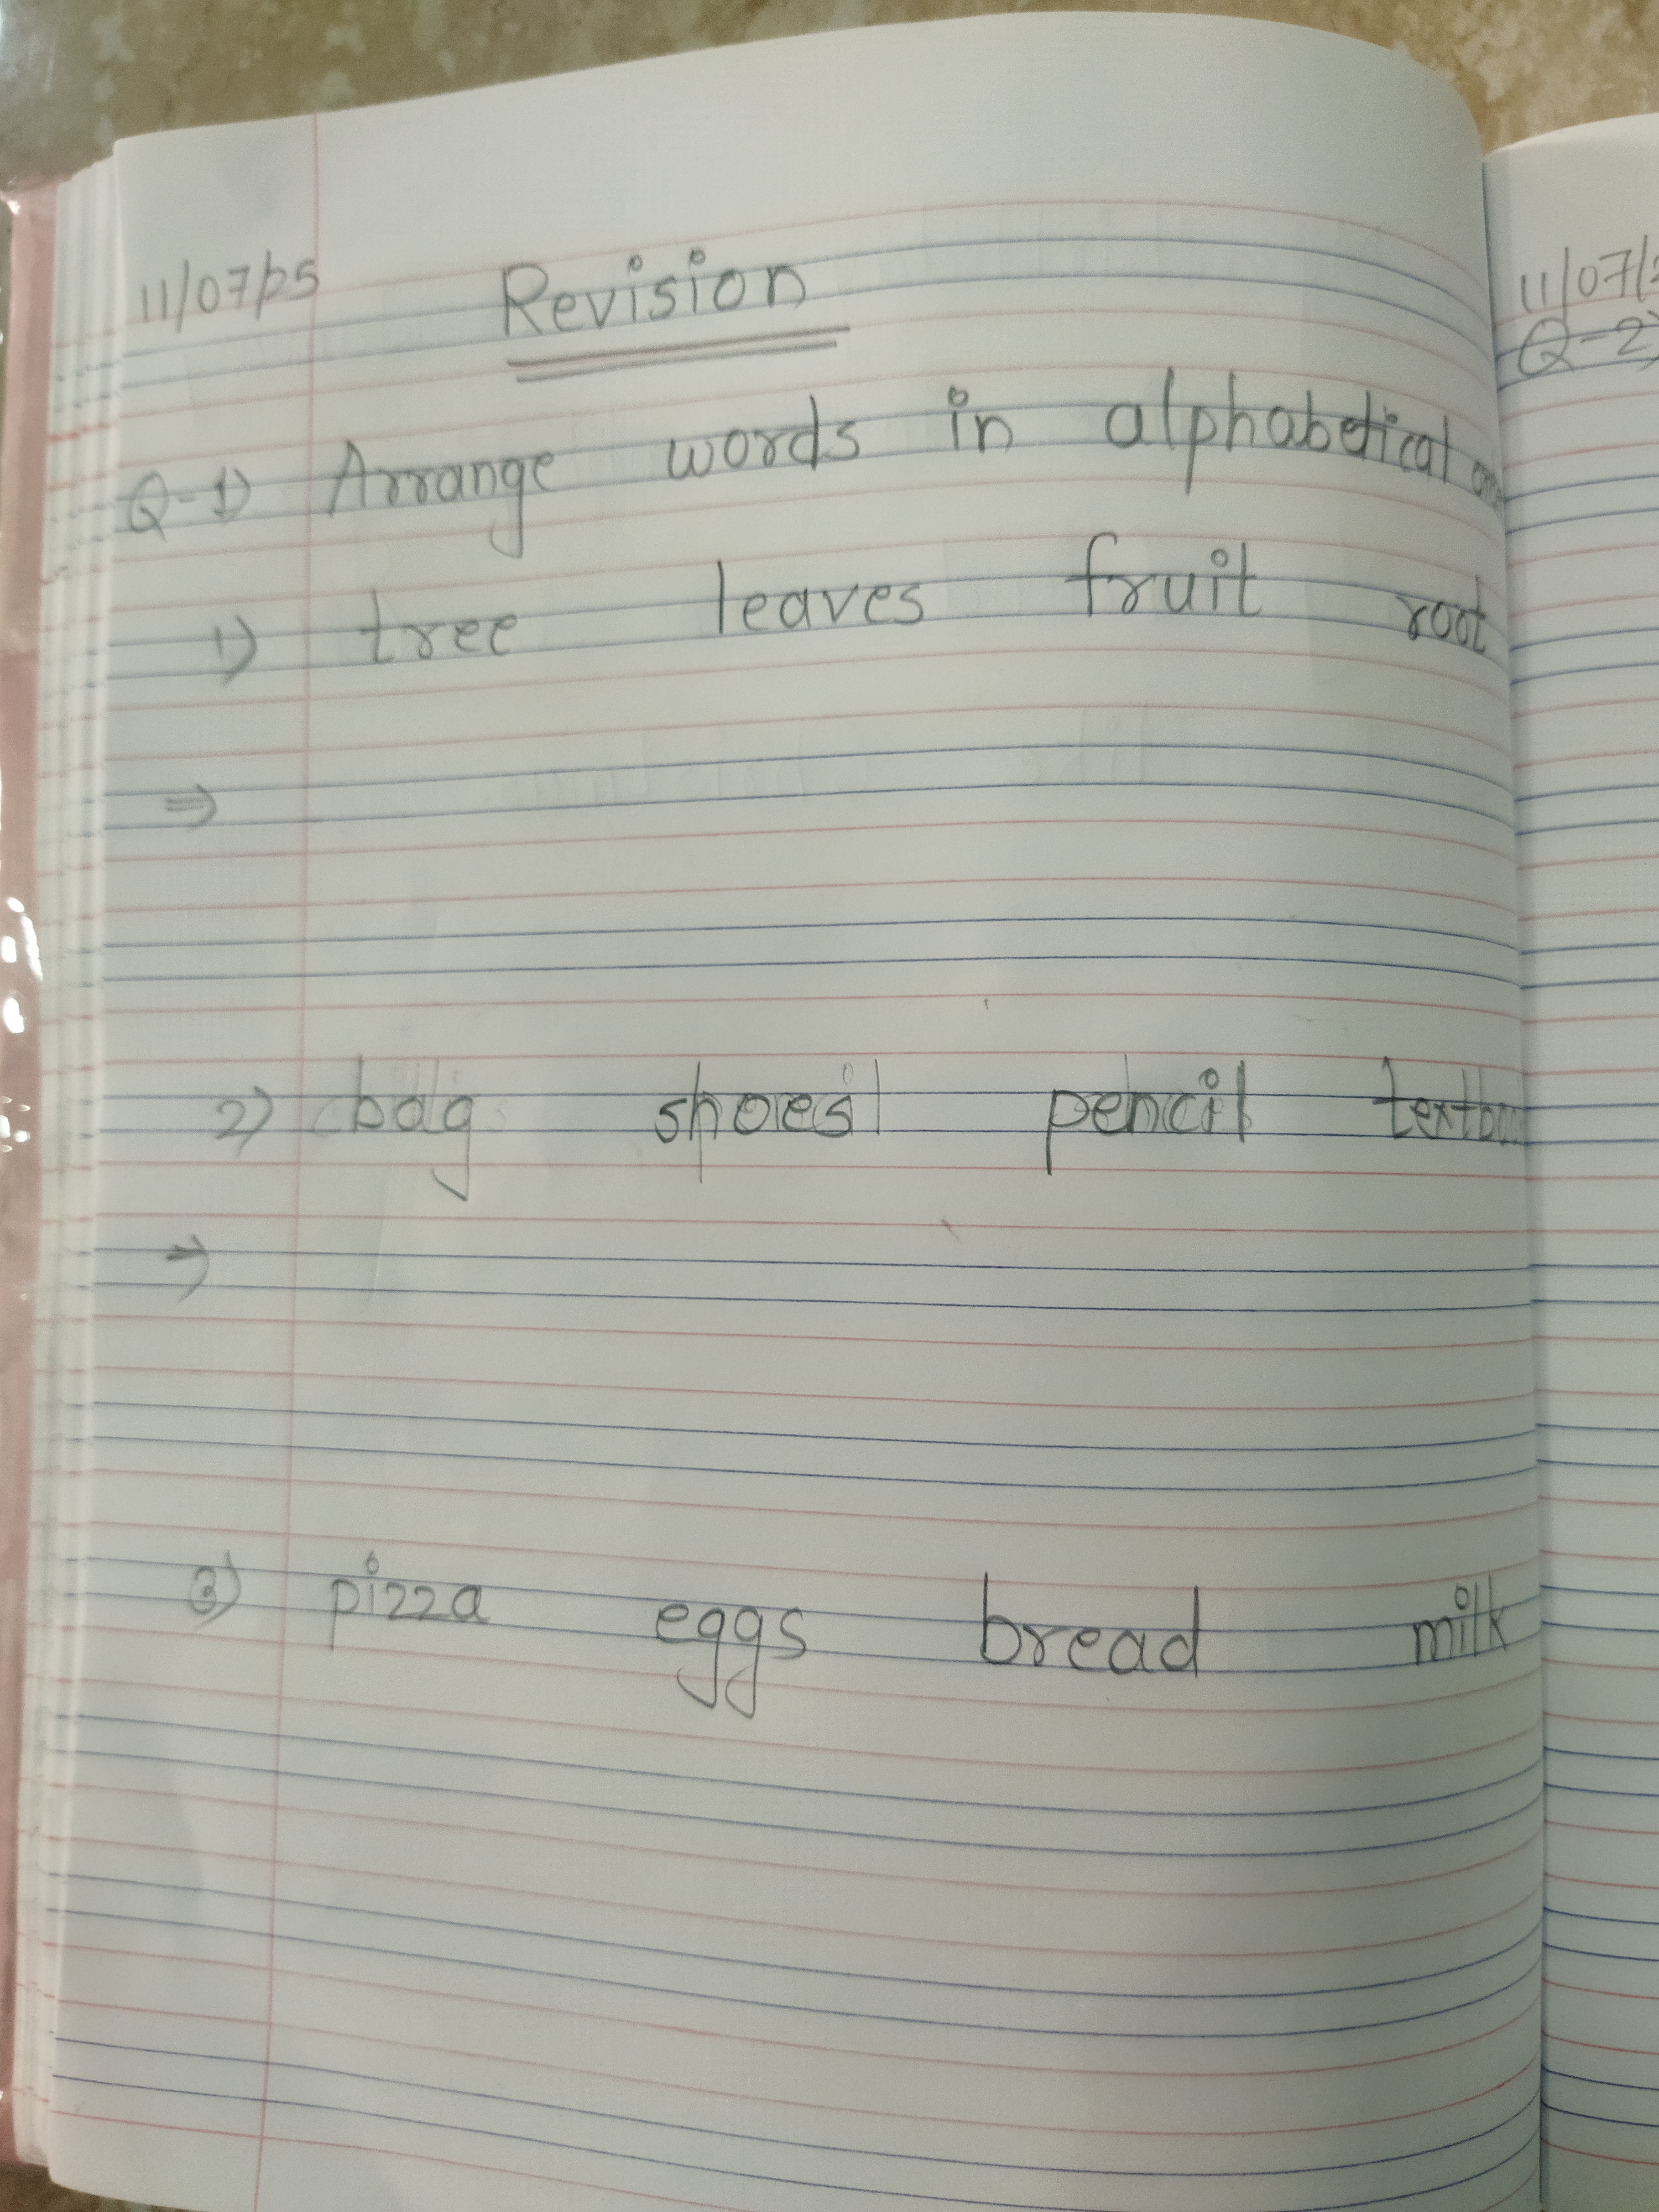 11/07/25 Revision
Q-1) Arrange words in alphabetical
1) tree leaves fruit root
⇒
2) bag shoes pencil
⇒
3) pizza eggs bread milk
11/07/
Q-2)